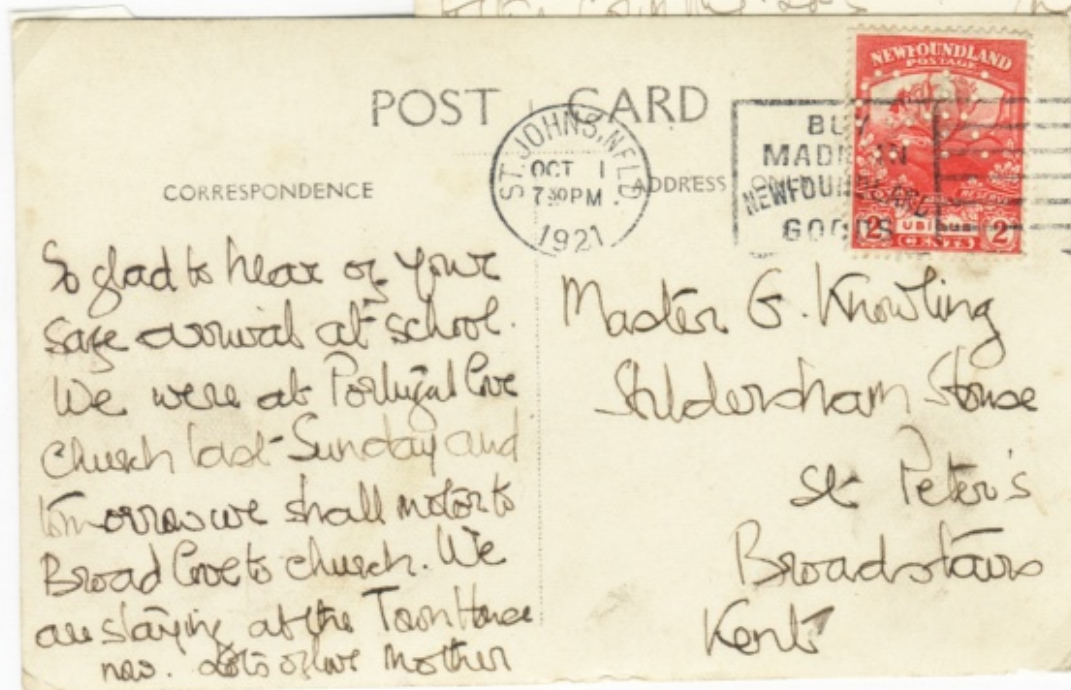 POST CARD
ST. JOHNS, NFLD
OCT 1
7 30 PM
1921
BUY
MADE IN
NEWFOUNDLAND
GOODS
NEWFOUNDLAND
POSTAGE
2 UBIQUE 2
CENTS
CORRESPONDENCE
ADDRESS ONLY
So glad to hear of your
safe arrival at school.
We were at Portugal Cove
church last Sunday and
tomorrow we shall motor to
Broad Cove to church. We
are staying at the Town House
now. Lots of love Mother
Master G. Knowling
Stildersham House
St Peter's
Broadstairs
Kent